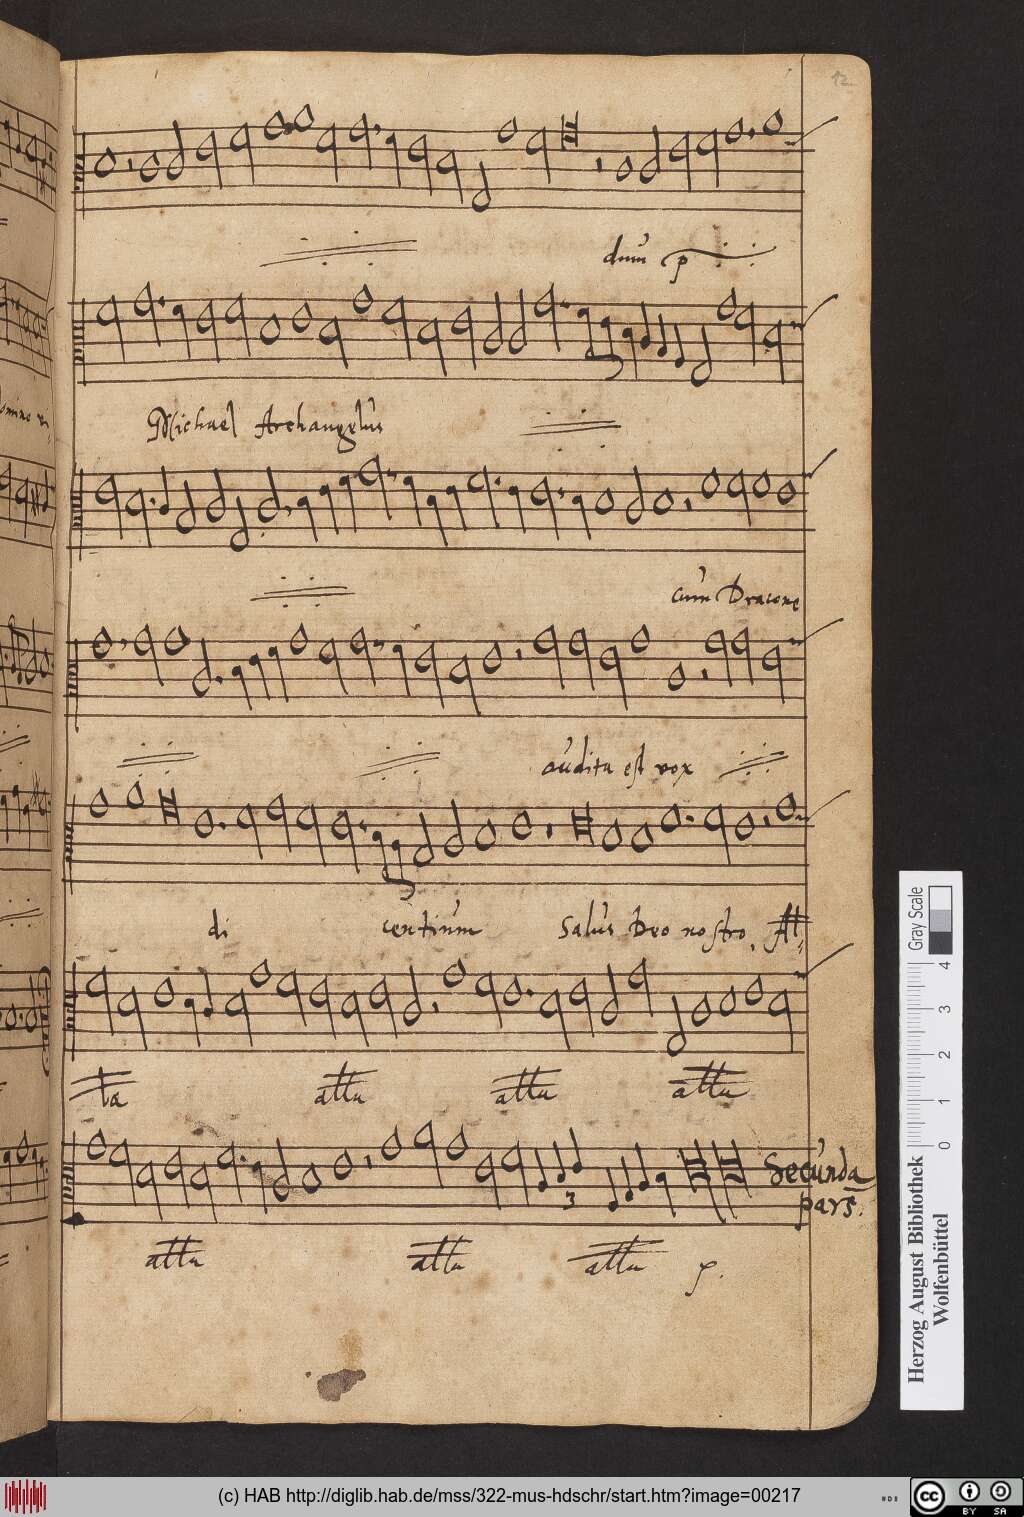 12
dum p
Michael Archangelus
cum Dracone
audita est vox
di centium Salus Deo nostro, All-
la alla alla alla
3
Secunda
pars.
alla alla alla
Gray Scale
0 1 2 3 4
Herzog August Bibliothek
Wolfenbüttel
(c) HAB http://diglib.hab.de/mss/322-mus-hdschr/start.htm?image=00217
HAB
cc BY SA